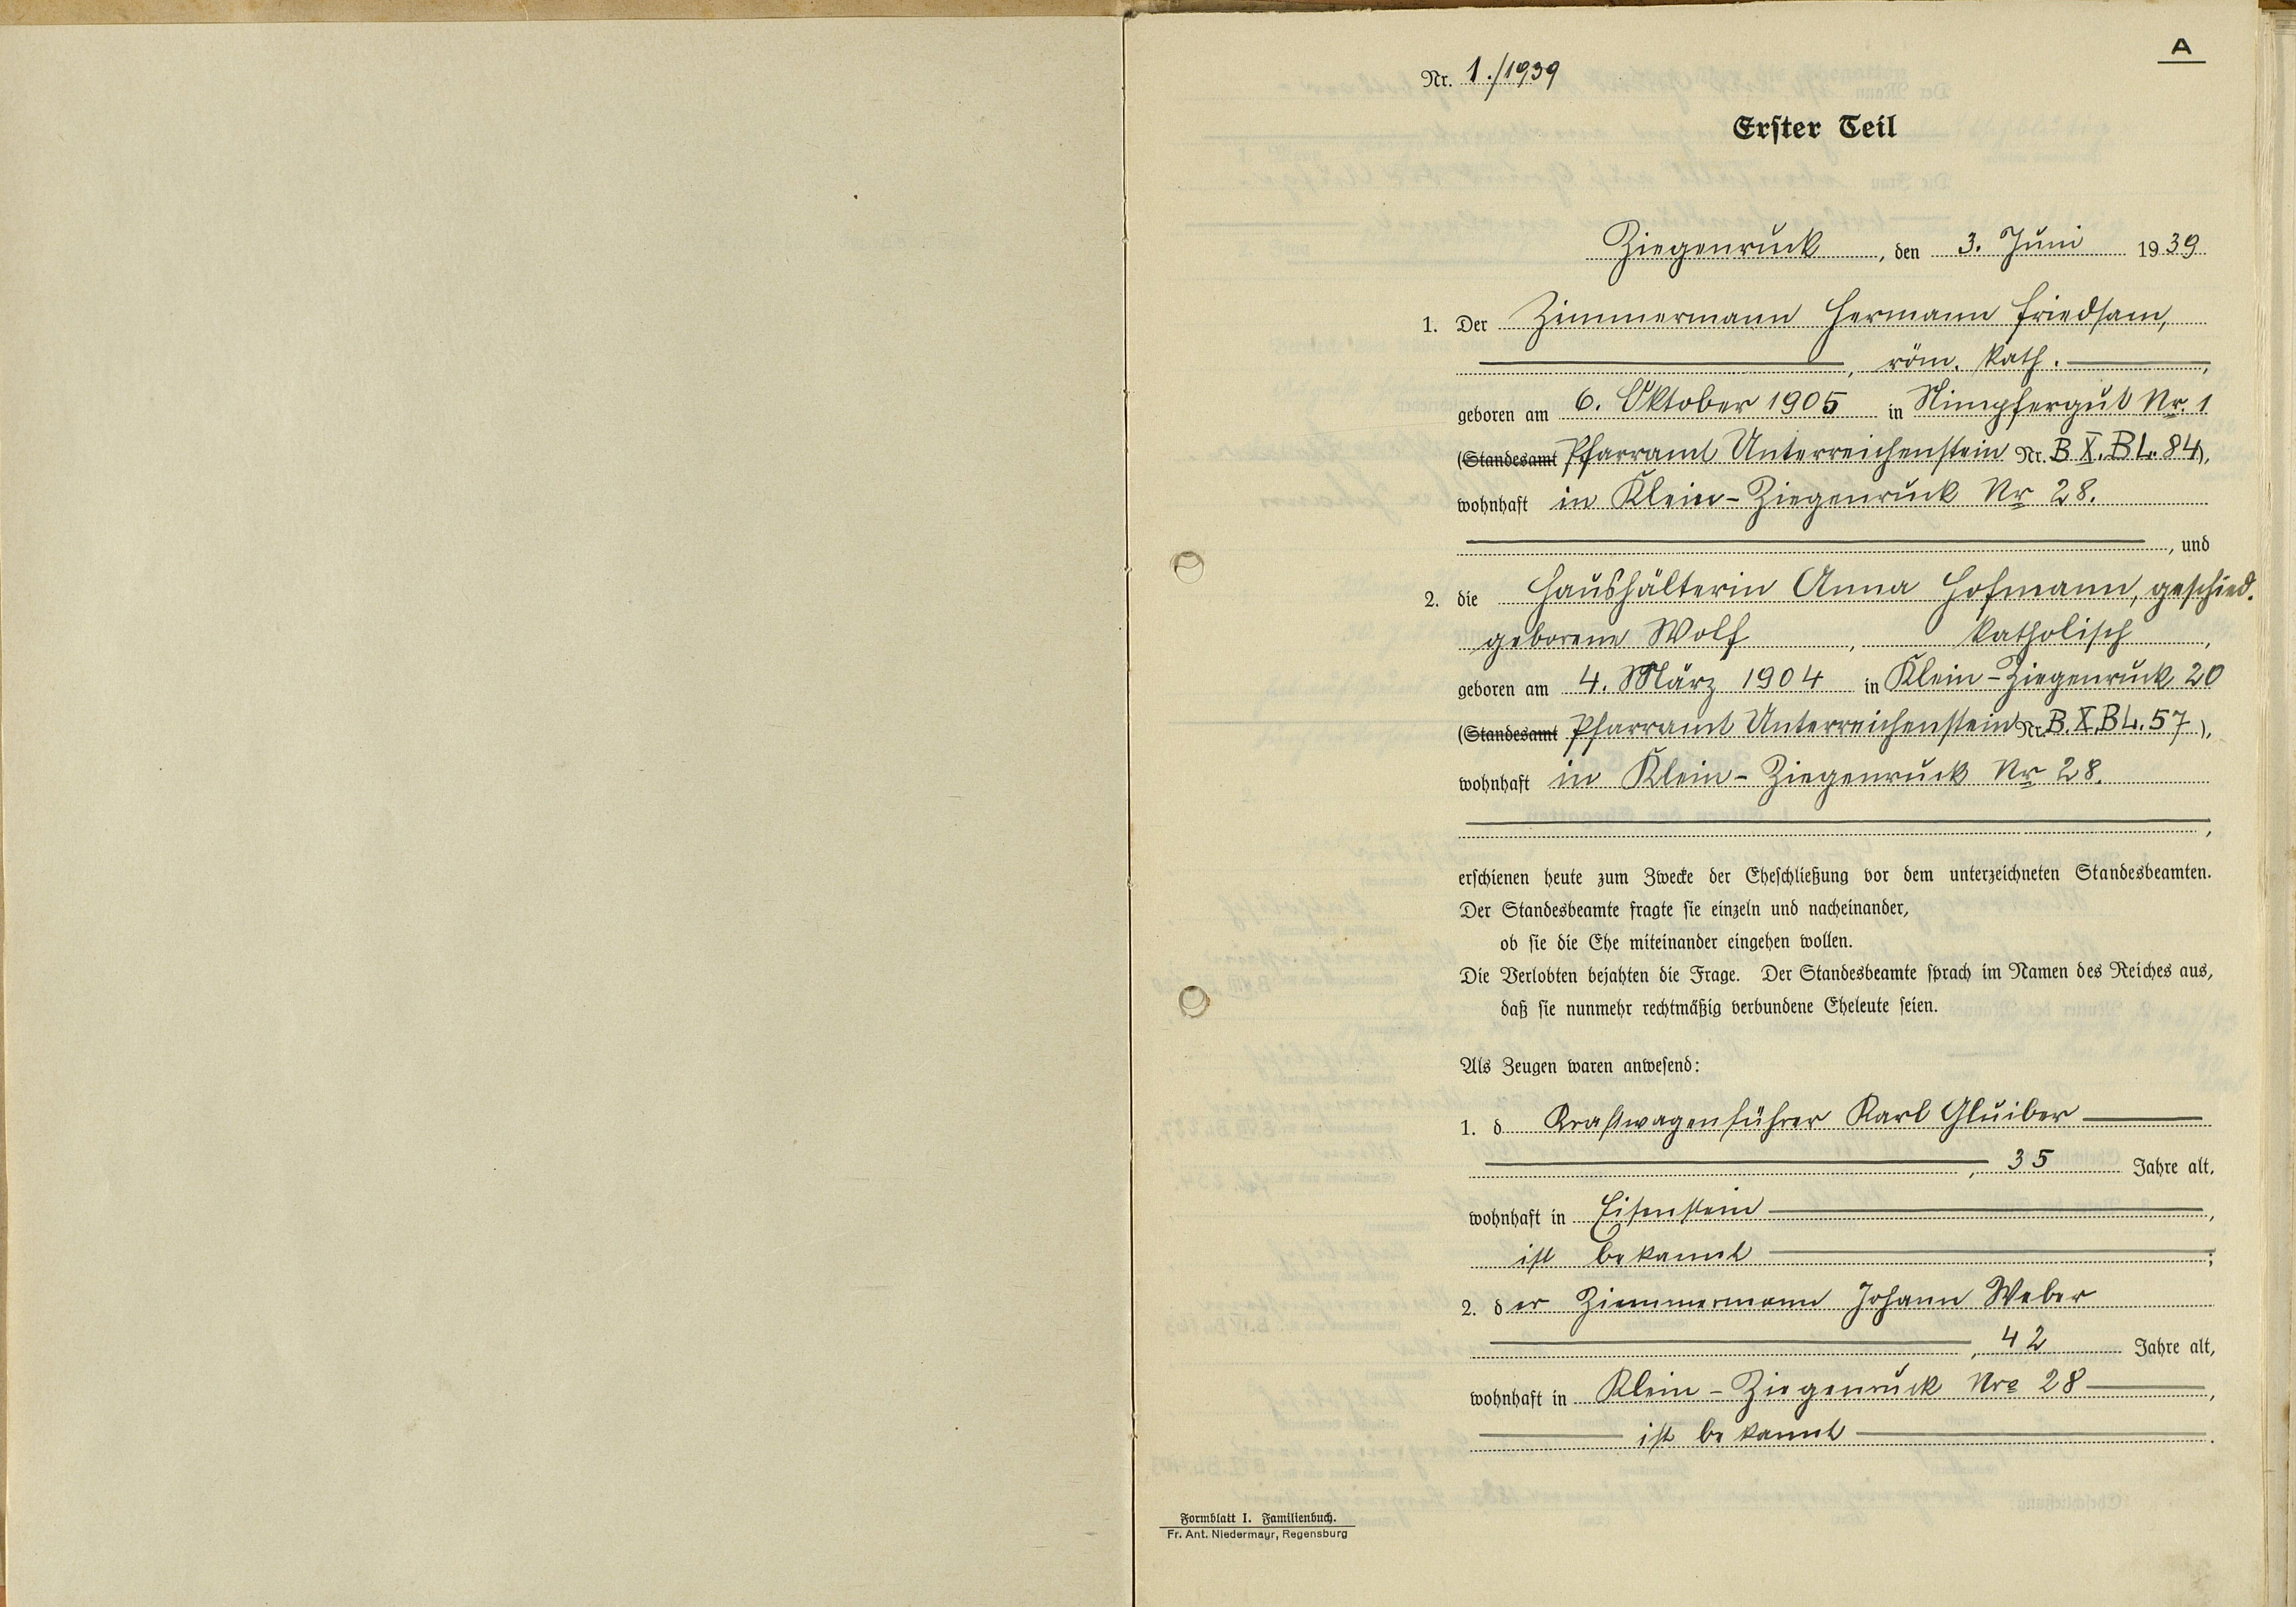 A
Nr. 1./1939
Erster Teil
Ziegenruck, den 3. Juni 1939
1. Der Zimmermann Hermann Friedsam,
, röm. kath.,
geboren am 6. Oktober 1905 in Nimpfergut Nr. 1
(Standesamt Pfarramt Unterreichenstein Nr. B X. BL. 84),
wohnhaft in Klein-Ziegenruck Nr 28.
, und
2. die Haushälterin Anna Hofmann, geschied.
geborene Wolf, katholisch,
geboren am 4. März 1904 in Klein-Ziegenruck 20
(Standesamt Pfarramt Unterreichenstein Nr. B. X. BL. 57),
wohnhaft in Klein-Ziegenruck Nr 28.
,
erschienen heute zum Zwecke der Eheschließung vor dem unterzeichneten Standesbeamten.
Der Standesbeamte fragte sie einzeln und nacheinander,
ob sie die Ehe miteinander eingehen wollen.
Die Verlobten bejahten die Frage. Der Standesbeamte sprach im Namen des Reiches aus,
daß sie nunmehr rechtmäßig verbundene Eheleute seien.
Als Zeugen waren anwesend:
1. d Kraftwagenführer Karl
, 35 Jahre alt,
wohnhaft in Eisenstein,
ist bekannt;
2. der Zimmermann Johann Weber
, 42 Jahre alt,
wohnhaft in Klein-Ziegenruck Nro 28,
ist bekannt.
Formblatt I. Familienbuch.
Fr. Ant. Niedermayr, Regensburg